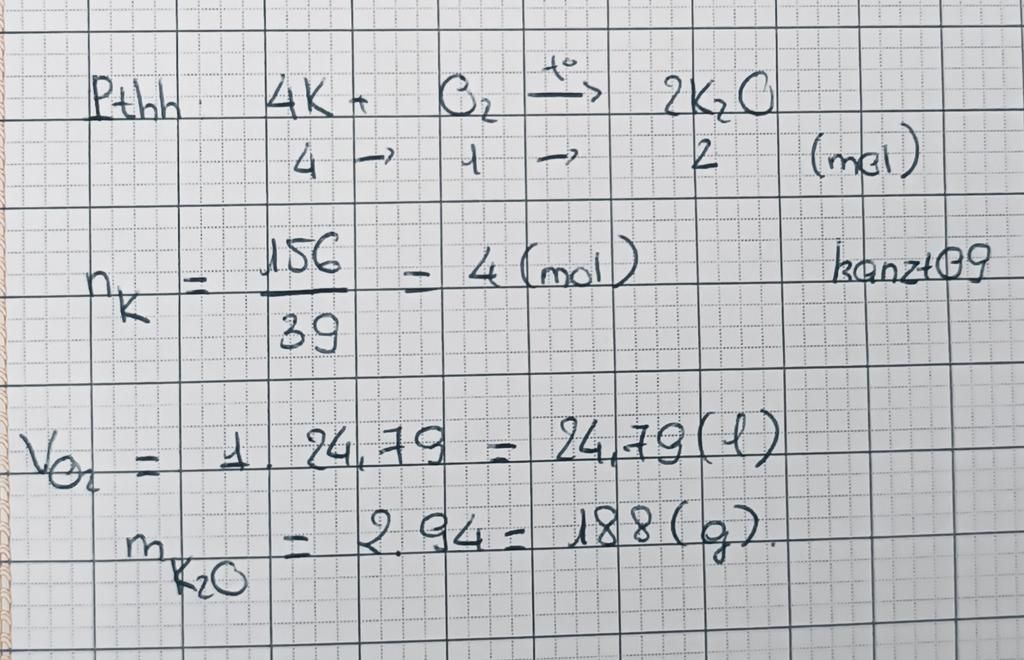 Pthh. 4K + O₂ t° → 2K₂O
4 → 1 → 2 (mol)
n_K = 156/39 = 4 (mol) kanzt09
V_O₂ = 1. 24,79 = 24,79 (l)
m_K₂O = 2.94 = 188 (g).